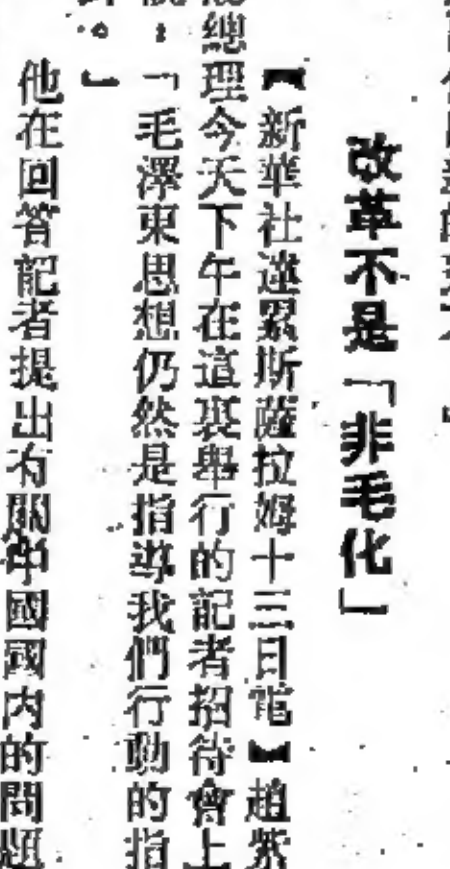 改革不是「非毛化」
【新華社達累斯薩拉姆十三日電】趙紫
總理今天下午在這裏舉行的記者招待會上
：「毛澤東思想仍然是指導我們行動的指
。」
他在回答記者提出有關中國國内的問題